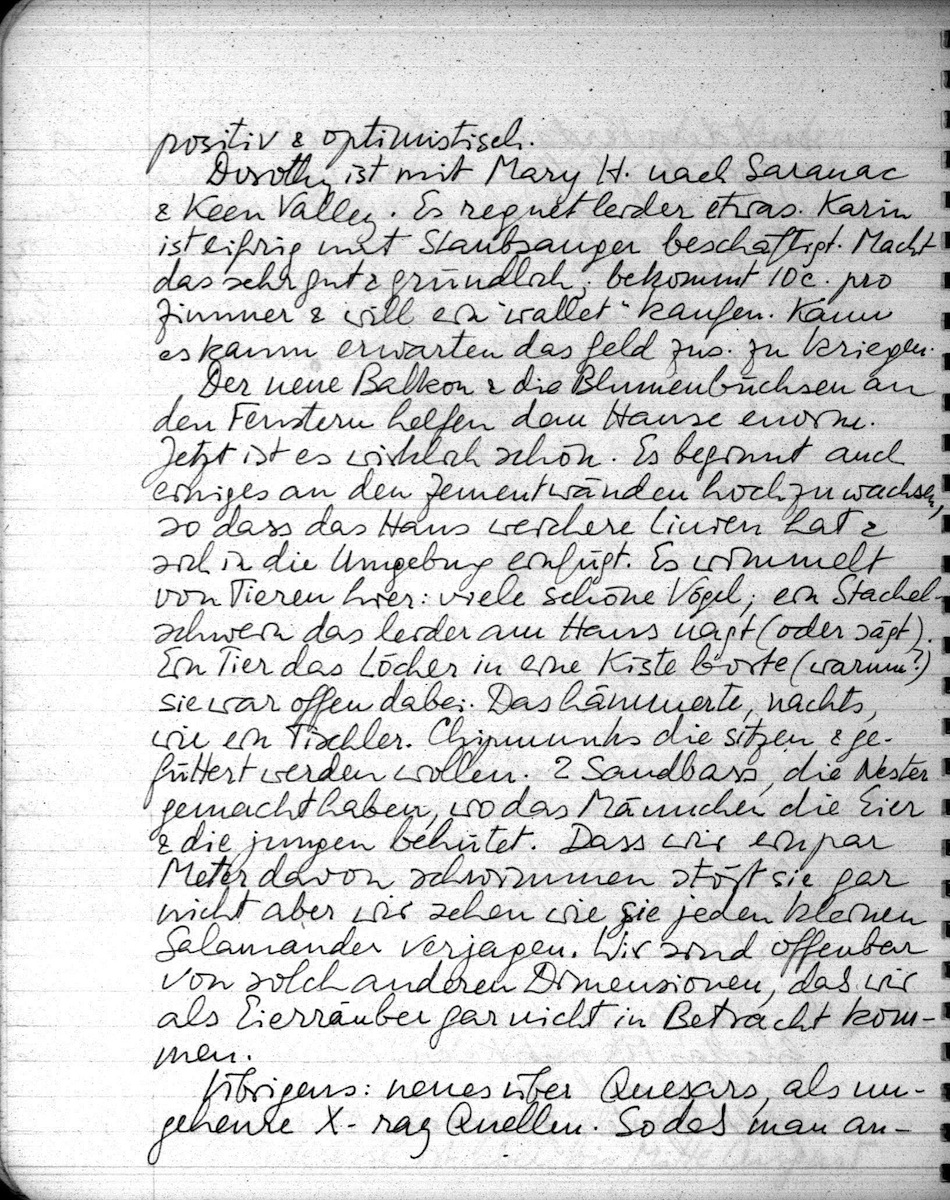 positiv & optimistisch.
Dorothy ist mit Mary H. nach Saranac
& Keen Valley. Es regnet leider etwas. Karin
ist eifrig mit Staubsauger beschäftigt. Macht
das sehr gut & gründlich; bekommt 10c. pro
Zimmer & will ein "wallet" kaufen. Kann
es kaum erwarten das Geld zus. zu kriegen.
Der neue Balkon & die Blumenbüchsen an
den Fenstern helfen dem Hause enorm.
Jetzt ist es wirklich schön. Es beginnt auch
einiges an den Zementwänden hochzuwachsen,
so dass das Haus weichere Linien hat &
sich in die Umgebung einfügt. Es wimmelt
von Tieren hier: viele schöne Vögel; ein Stachel-
schwein das leider am Haus nagt (oder sägt).
Ein Tier das Löcher in eine Kiste bohrte (warum?)
sie war offen dabei. Das hämmerte, nachts,
wie ein Tischler. Chipmunks die sitzen & ge-
füttert werden wollen. 2 Sandbass, die Nester
gemacht haben, wo das Männchen die Eier
& die jungen behütet. Dass wir ein par
Meter davon schwimmen stört sie gar
nicht aber wir sehen wie sie jeden kleinen
Salamander verjagen. Wir sind offenbar
von solch anderen Dimensionen, das wir
als Eierräuber gar nicht in Betracht kom-
men.
Übrigens: neues über Quesars, als un-
geheure X-ray Quellen. So das man an-